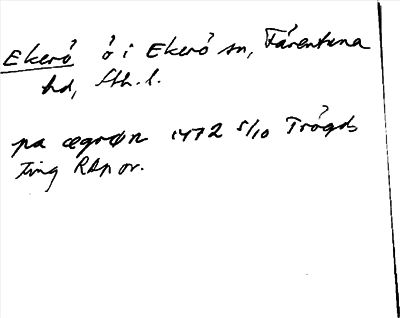 Ekerö ö i Ekerö sn, Färentuna
hd, Sth. l.
pa ægrøn 1472 5/10 Trögds
Ting RAp or.